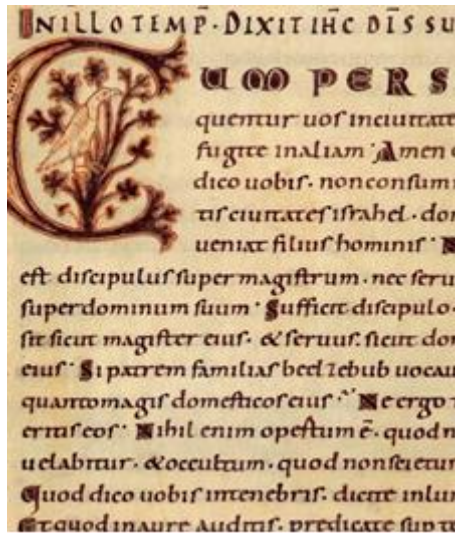 IN ILLO TEMP̄· DIXIT IH̄C DĪS SU
CUM PERS
quentur uos inciuitate
fugite inaliam· Amen
dico uobis· nonconsum
tis ciuitates israhel· do
ueniat filius hominis· N
est discipulus super magistrum· nec seru
super dominum suum· Sufficit discipulo·
sit sicut magister eius· & seruus· sicut do
eius· Si patrem familias beelzebub uoca
quantomagis domesticos eius· Ne ergo t
eritis eos· Nihil enim opertum ē· quod n
uelabitur· & occultum· quod nonscietur
Quod dico uobis intenebris· dicite inlu
Et quod inaure auditis· predicate sup t